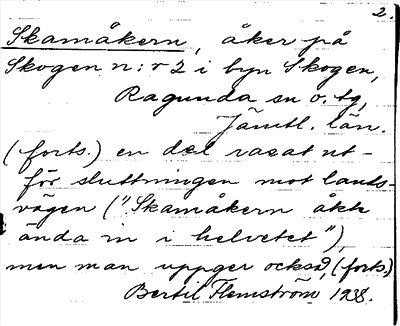 2.
Skamåkern, åker på
Skogen n:r 2 i byn Skogen,
Ragunda sn o. tg,
Jämtl. län.
(forts.) en del rasat ut-
för sluttningen mot lands-
vägen ("Skamåkern åkte
ända in i helvetet"),
men man uppger också, (forts.)
Bertil Flemström 1938.